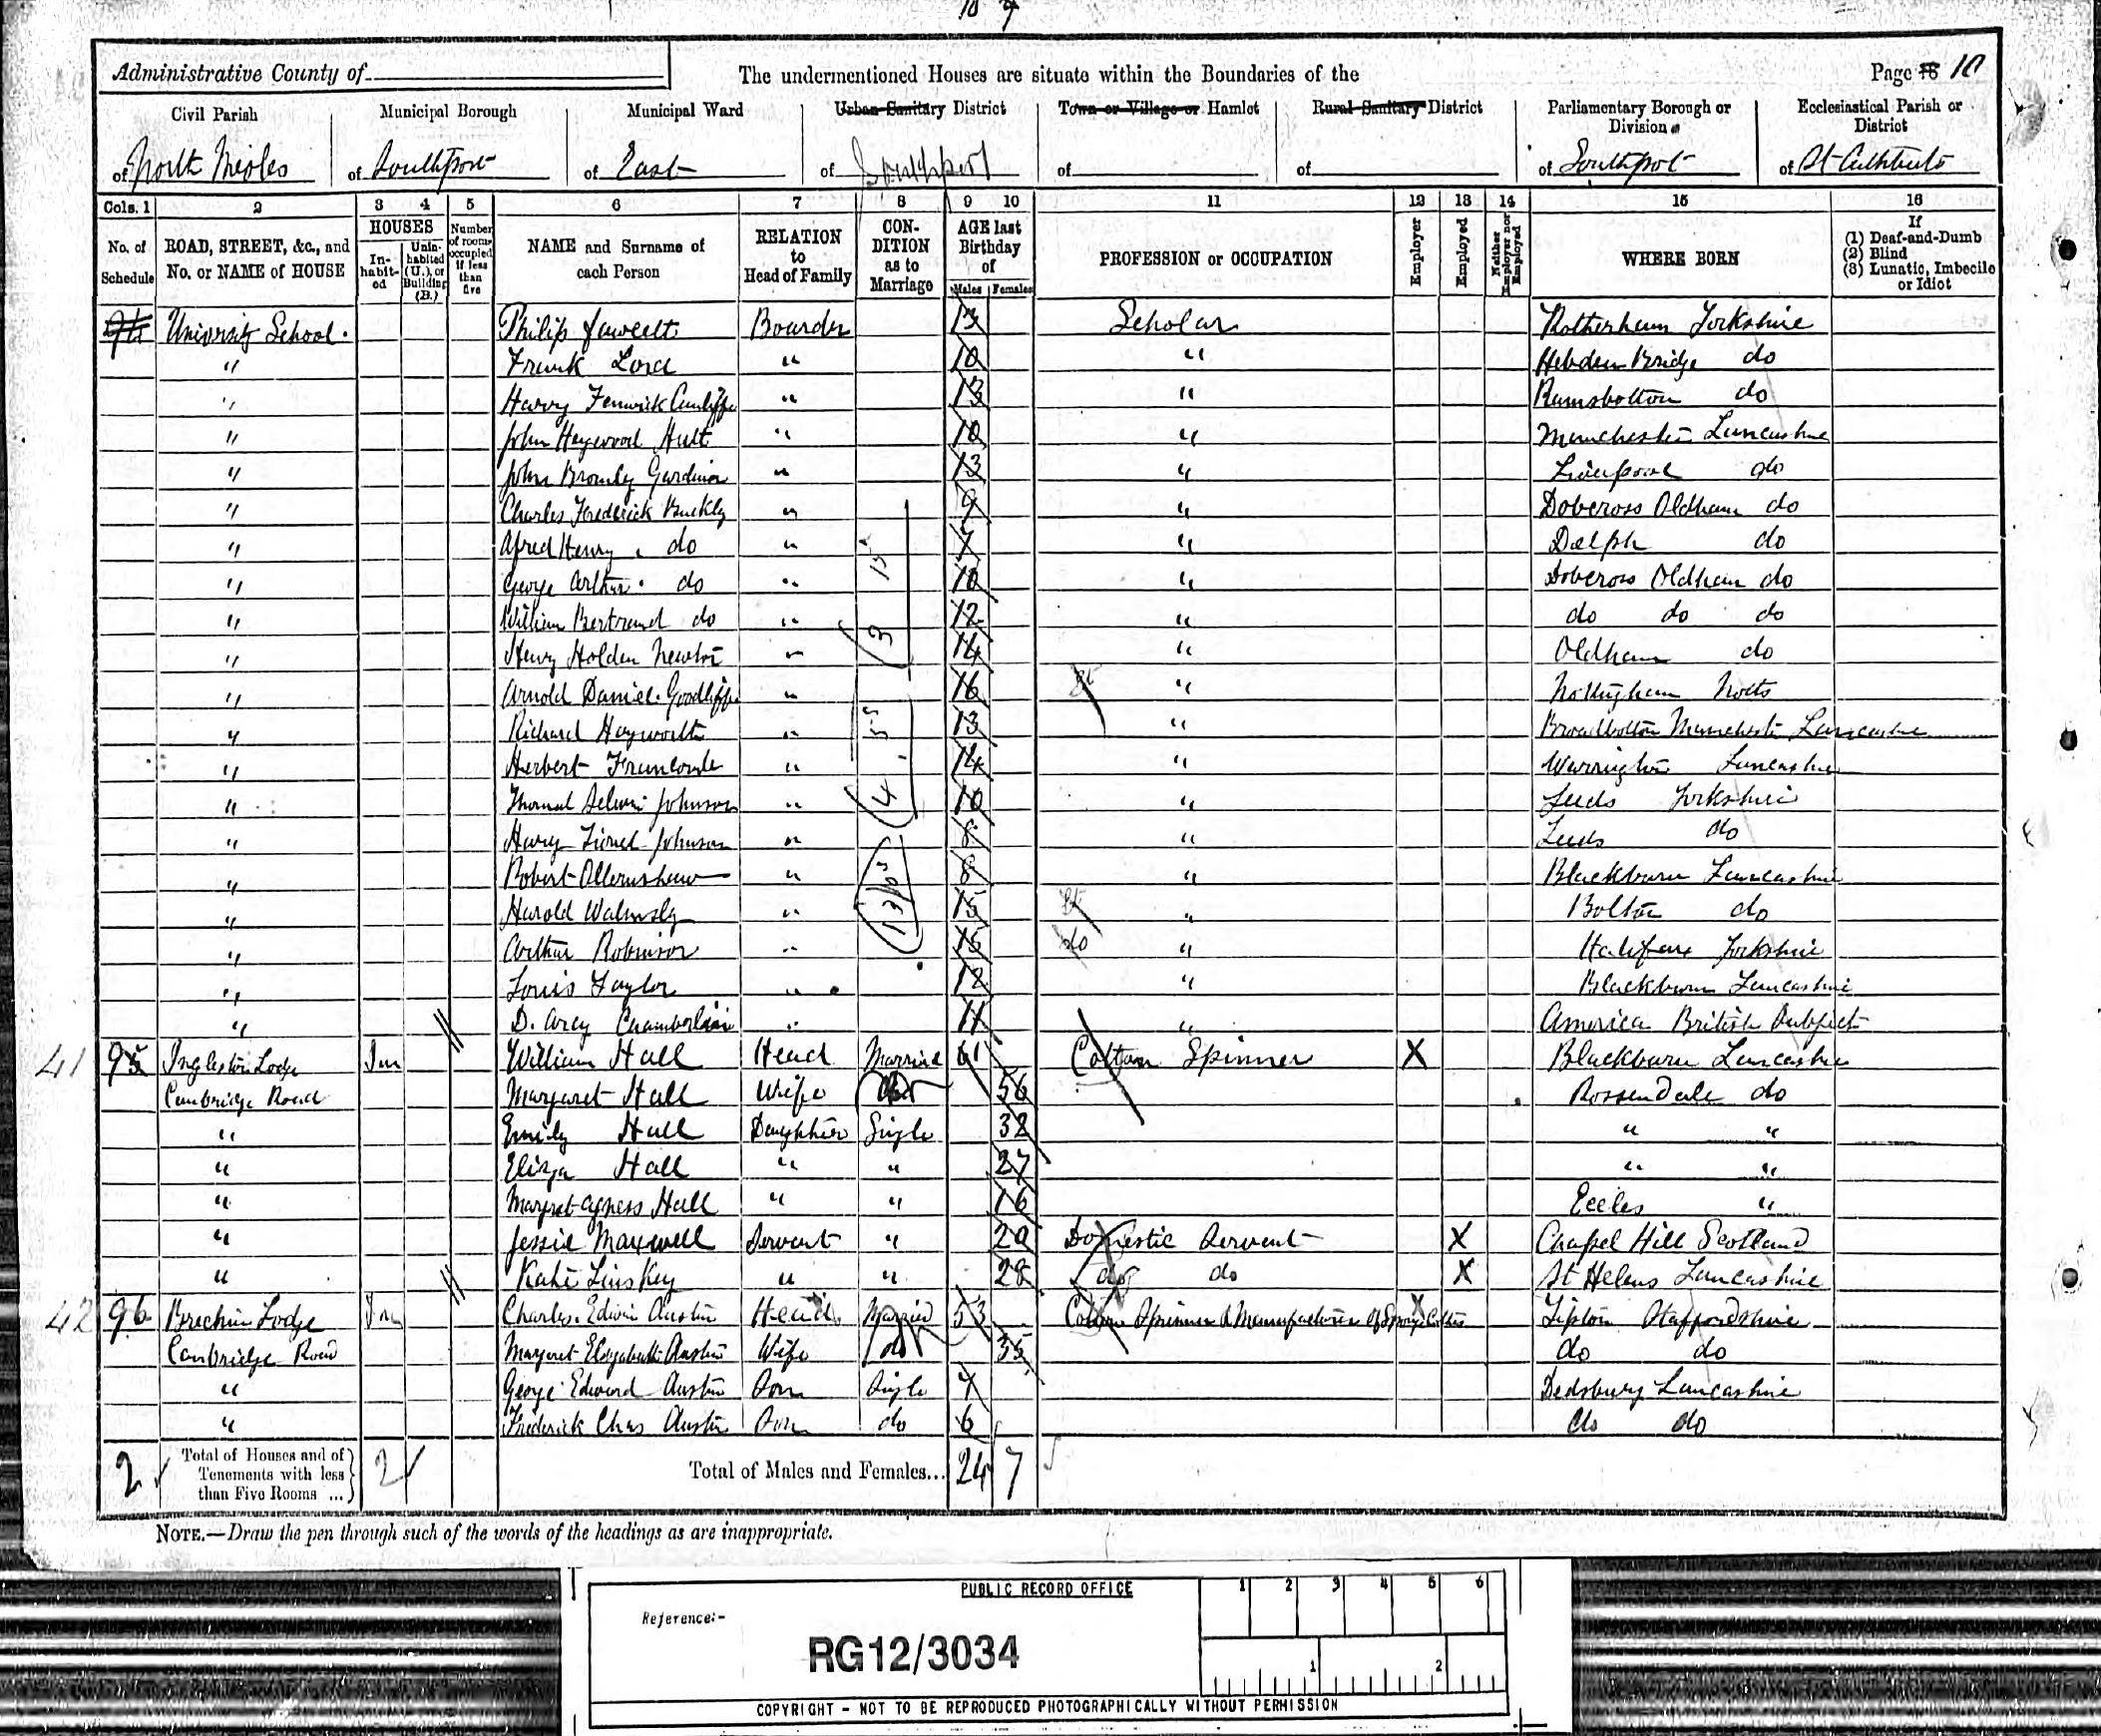 10 9
Administrative County of
The undermentioned Houses are situate within the Boundaries of the
Page 10
Civil Parish
Municipal Borough
Municipal Ward
Urban Sanitary District
Town or Village or Hamlet
Rural Sanitary District
Parliamentary Borough or Division
Ecclesiastical Parish or District
of North Meoles
of Southport
of East
of Southport
of
of
of Southport
of St Cuthberts
Cols. 1 2 3 4 5 6 7 8 9 10 11 12 13 14 15 16
No. of Schedule
ROAD, STREET, &c., and No. or NAME of HOUSE
HOUSES
Inhabited
Uninhabited (U.), or Building (B.)
Number of rooms occupied if less than five
NAME and Surname of each Person
RELATION to Head of Family
CONDITION as to Marriage
AGE last Birthday of
Males Females
PROFESSION or OCCUPATION
Employer
Employed
Neither Employer nor Employed
WHERE BORN
If
(1) Deaf-and-Dumb
(2) Blind
(3) Lunatic, Imbecile or Idiot
94 University School. Philip Fawcett Boarder 13 Scholar Rotherham Yorkshire
" Frank Lord " 10 " Hebden Bridge do
" Harry Fenwick Cunliffe " 13 " Ramsbottom do
" John Heywood Hult " 10 " Manchester Lancashire
" John Bromley Gardiner " 13 " Liverpool do
" Charles Frederick Buckley " 9 " Dobcross Oldham do
" Alfred Henry do " 7 " Delph do
" George Arthur do " 10 " Dobcross Oldham do
" William Bertrand do " 12 " do do do
" Henry Holden Newton " 14 " Oldham do
" Arnold Daniel Goodliffe " 16 " Nottingham Notts
" Richard Hayworth " 13 " Broadbottom Manchester Lancashire
" Herbert Francombe " 14 " Warrington Lancashire
" Thomas Selwin Johnson " 10 " Leeds Yorkshire
" Harry Lionel Johnson " 8 " Leeds do
" Robert Ollernshaw " 8 " Blackburn Lancashire
" Harold Walmsley " 15 " Bolton do
" Arthur Robinson " 15 do " Halifax Yorkshire
" Louis Taylor " 12 " Blackburn Lancashire
" D. Arcy Chamberlain " 11 " America British Subject
41 95 Ingleston Lodge In William Hall Head Married 61 Cotton Spinner X Blackburn Lancashire
Cambridge Road Margaret Hall Wife do 56 Rossendale do
" Emily Hall Daughter Single 32 " "
" Eliza Hall " " 27 " "
" Margret Agness Hall " " 16 Eccles "
" Jessie Maxwell Servant " 20 Domestic Servant X Chapel Hill Scotland
" Kate Linskey " " 28 do do X St Helens Lancashire
42 96 Brechin Lodge In Charles Edwin Austin Head Married 53 Cotton Spinner & Manufacturer of Sponge Cloths X Tipton Staffordshire
Cambridge Road Margaret Elizabeth Austin Wife do 35 do do
" George Edward Austin Son Single 7 Dedsbury Lancashire
" Frederick Chas Austin Son do 6 do do
2 Total of Houses and of Tenements with less than Five Rooms ... 2 Total of Males and Females... 24 7
NOTE.—Draw the pen through such of the words of the headings as are inappropriate.
PUBLIC RECORD OFFICE
1 2 3 4 5 6
Reference:-
RG12/3034
1 2
COPYRIGHT - NOT TO BE REPRODUCED PHOTOGRAPHICALLY WITHOUT PERMISSION